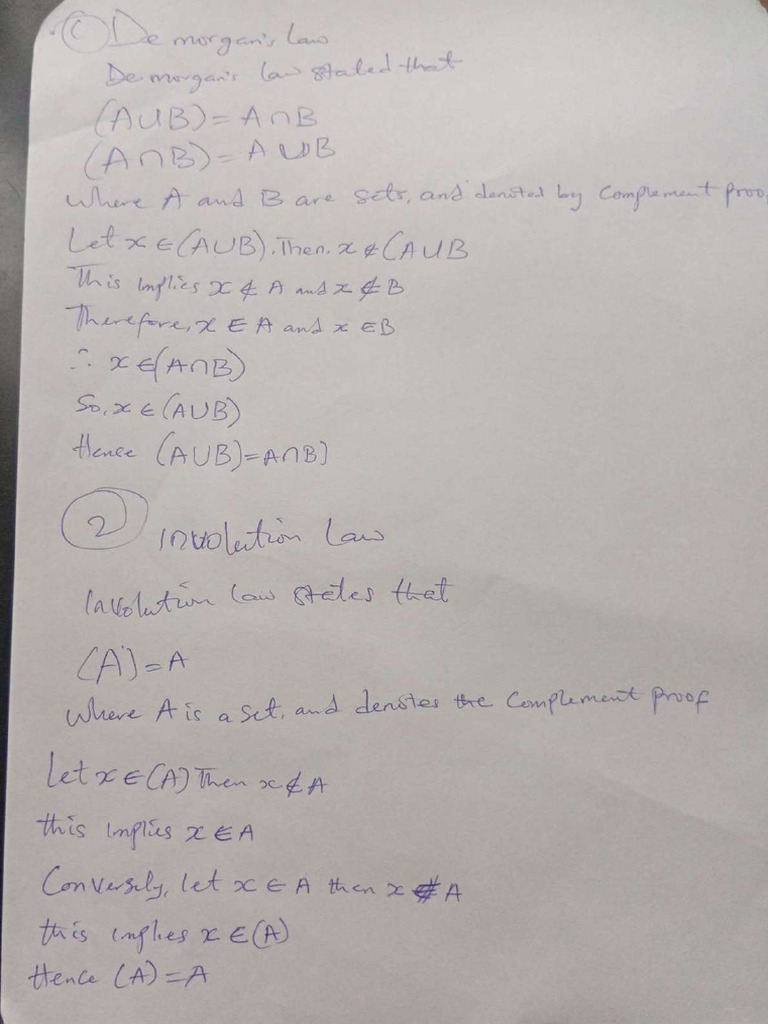 (C) De morgan's Law
De morgan's law stated that
(A∪B) = A∩B
(A∩B) = A∪B
where A and B are sets, and denoted by Complement proo
Let x ∈ (A∪B). Then. x ∉ (A∪B
This implies x ∉ A and x ∉ B
Therefore, x ∈ A and x ∈ B
∴ x ∈ (A∩B)
So, x ∈ (A∪B)
Hence (A∪B) = A∩B]
(2) Involution Law
Involution law states that
(A') = A
where A is a set, and denotes the Complement proof
Let x ∈ (A) Then x ∉ A
this implies x ∈ A
Conversely, let x ∈ A then x ∉ A
this implies x ∈ (A)
Hence (A) = A